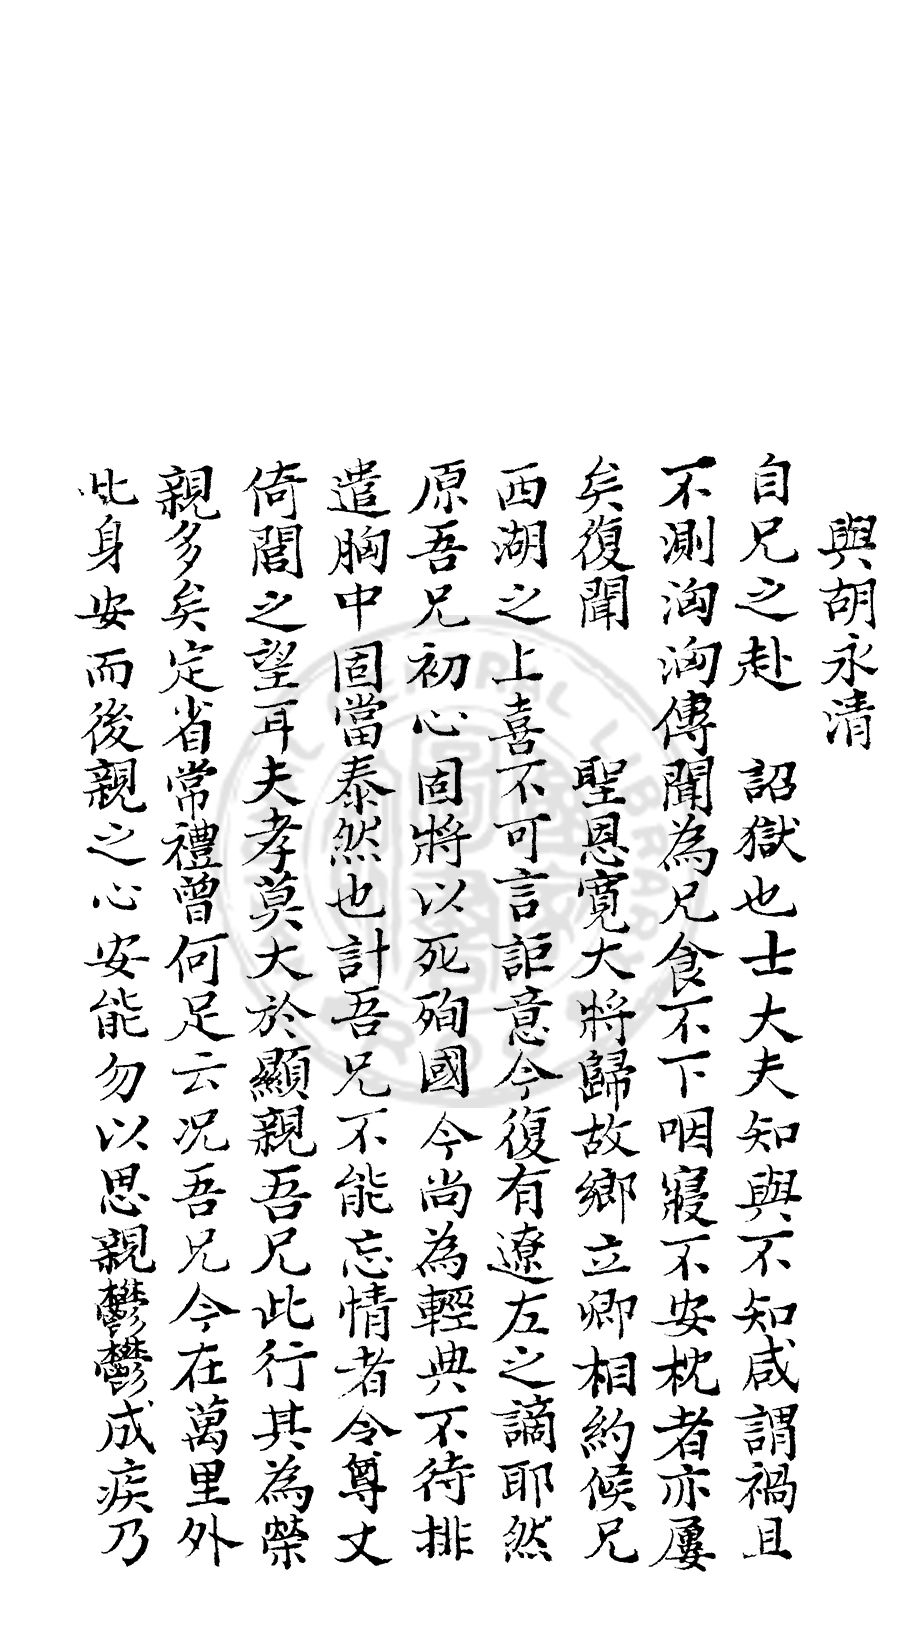 與胡永清
自兄之赴 詔獄也士大夫知與不知咸謂禍且
不測洶洶傳聞為兄食不下咽寢不安枕者亦屢
矣復聞 聖恩寬大將歸故鄉立卿相約候兄
西湖之上喜不可言詎意今復有遼左之謫耶然
原吾兄初心固將以死殉國今尚為輕典不待排
遣胸中固當泰然也計吾兄不能忘情者令尊丈
倚閭之望耳夫孝莫大於顯親吾兄此行其為榮
親多矣定省常禮曾何足云况吾兄今在萬里外
此身安而後親之心安能勿以思親鬱鬱成疾乃